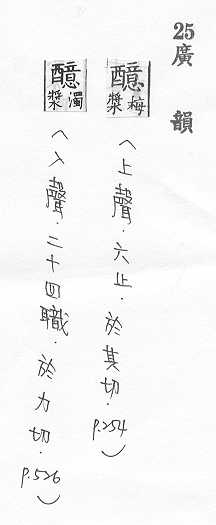 25廣韻
醷梅漿
〈上聲.六止.於其切.p.254〉
醷濁漿
〈入聲.二十四職.於力切.p.526〉